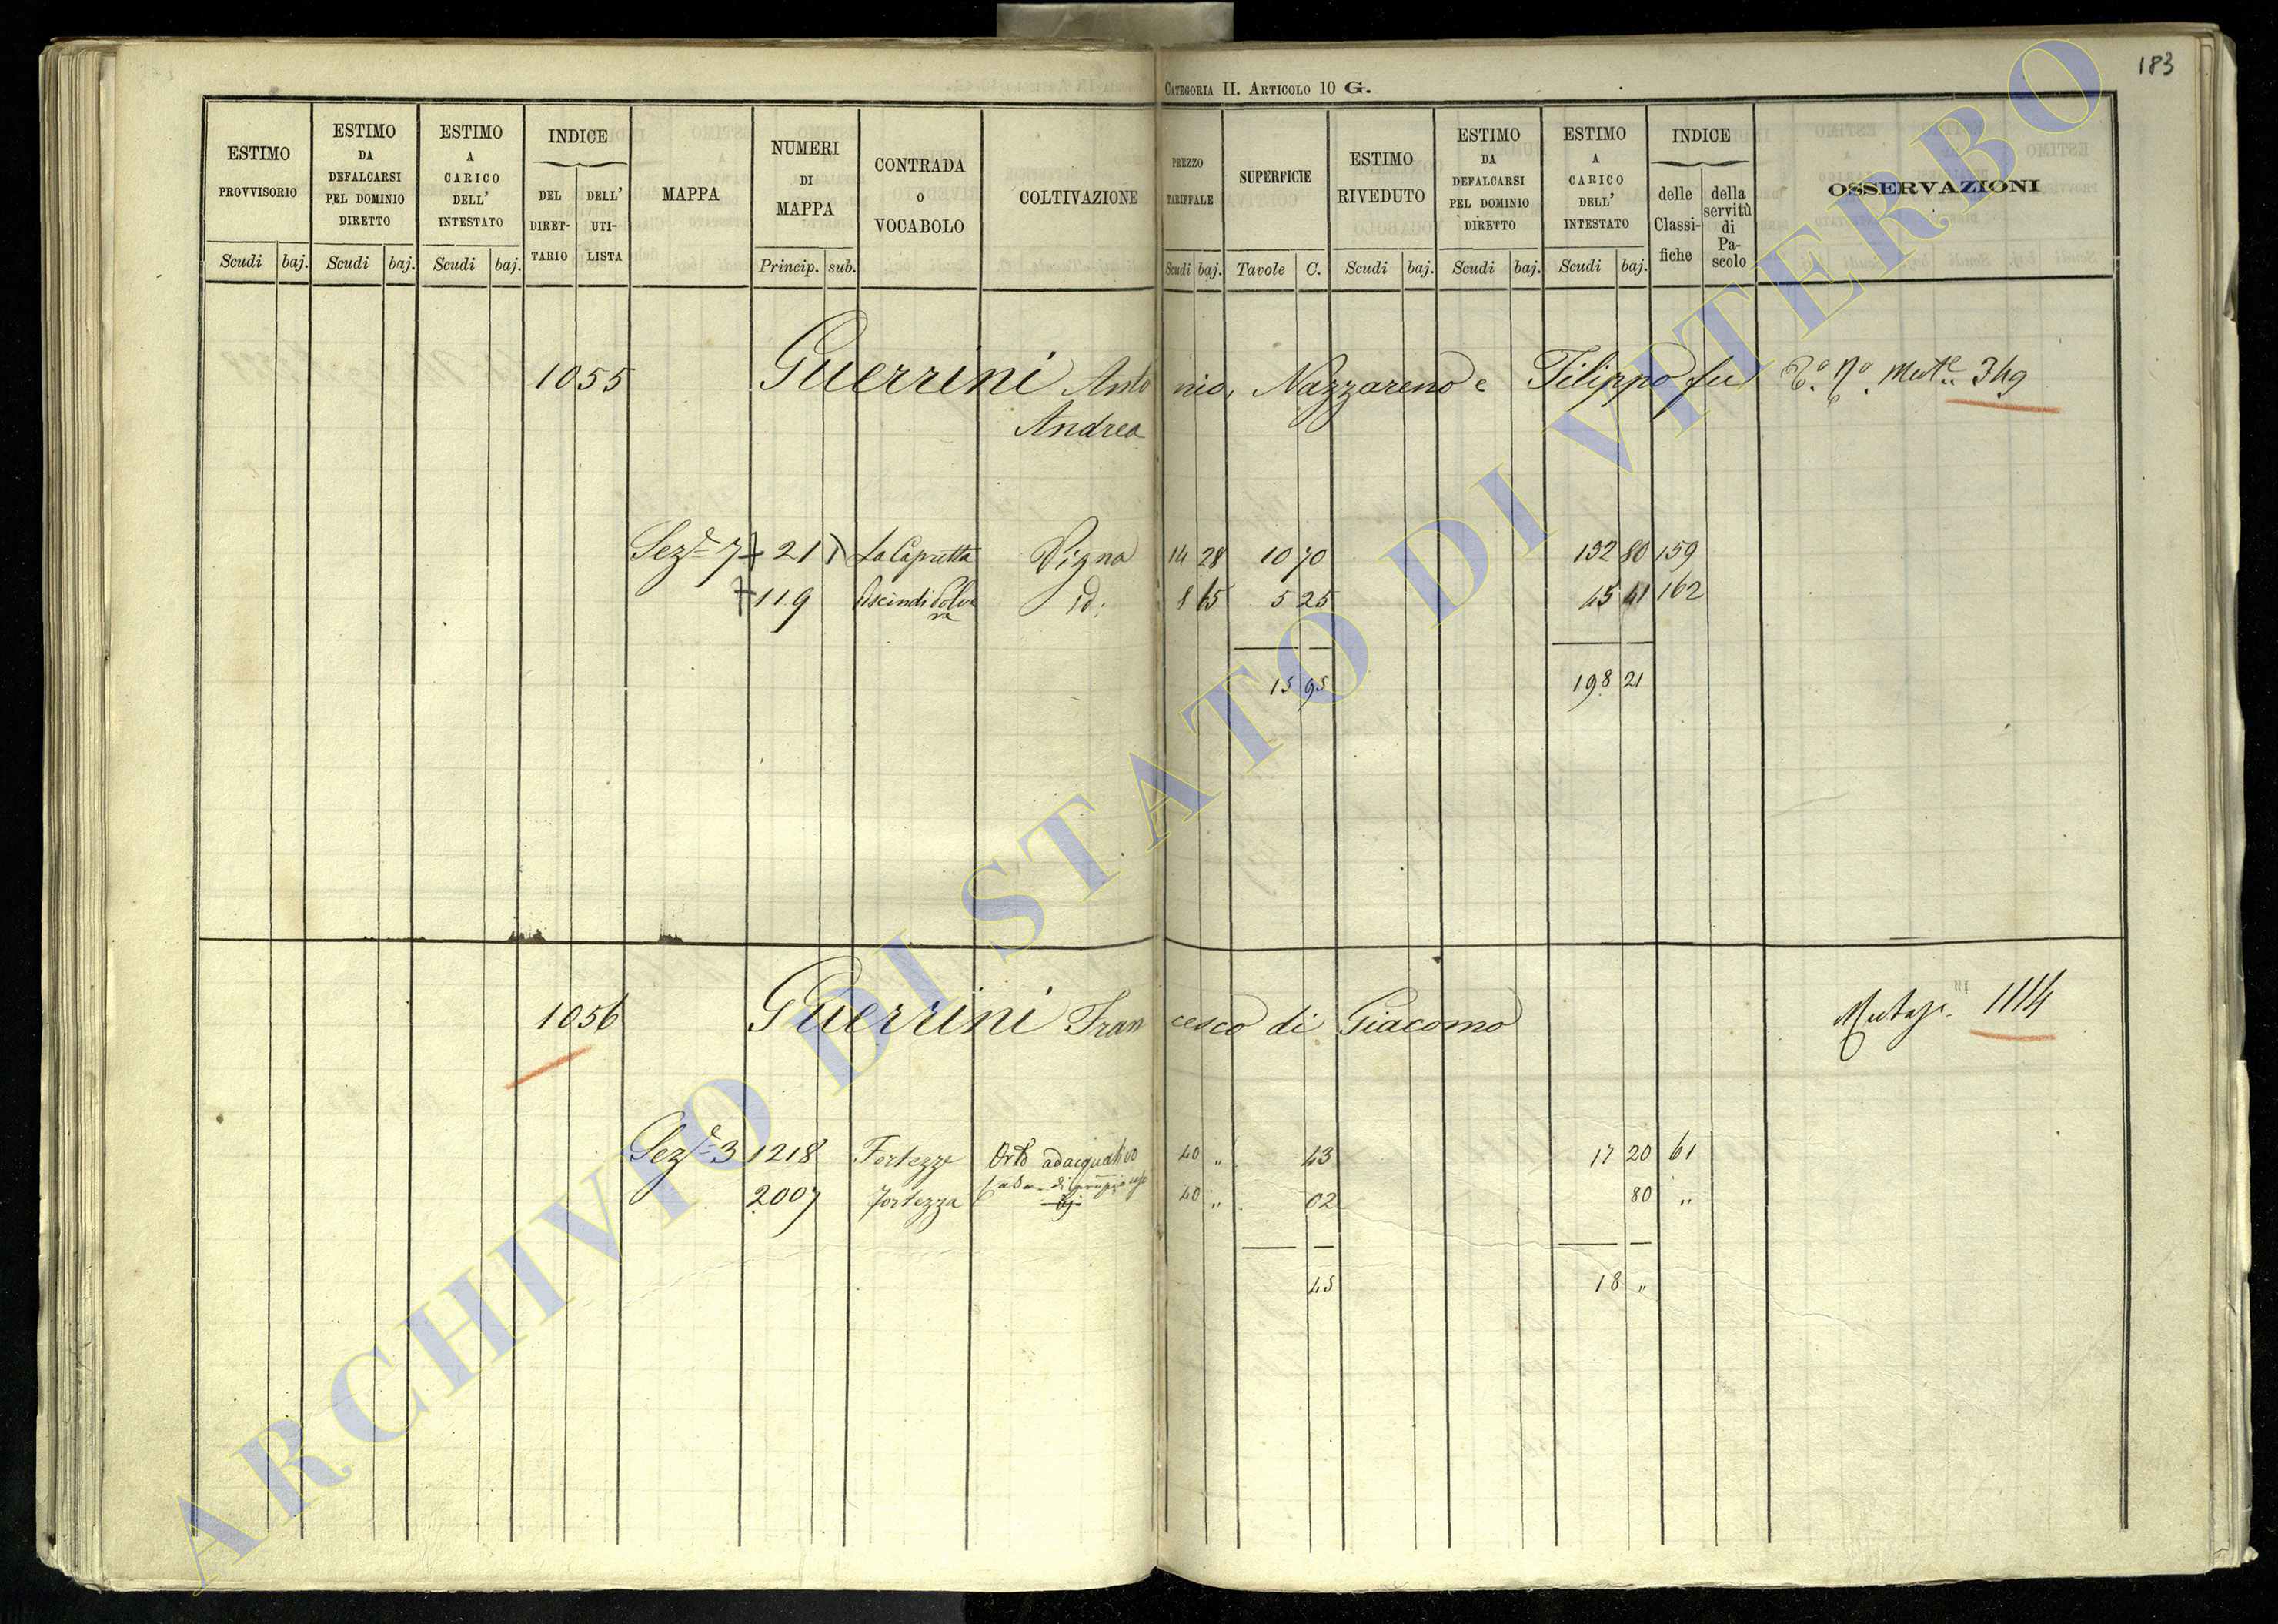 183
CATEGORIA II. ARTICOLO 10 G.
ESTIMO PROVVISORIO Scudi baj.
ESTIMO DA DEFALCARSI PEL DOMINIO DIRETTO Scudi baj.
ESTIMO A CARICO DELL' INTESTATO Scudi baj.
INDICE DEL DIRET-TARIO DELL' UTI-LISTA
MAPPA
NUMERI DI MAPPA Princip. sub.
CONTRADA O VOCABOLO
COLTIVAZIONE
PREZZO TARIFFALE Scudi baj.
SUPERFICIE Tavole C.
ESTIMO RIVEDUTO Scudi baj.
ESTIMO DA DEFALCARSI PEL DOMINIO DIRETTO Scudi baj.
ESTIMO A CARICO DELL' INTESTATO Scudi baj.
INDICE delle Classi-fiche della servitù di Pa-scolo
OSSERVAZIONI
1055 Guerrini Antonio, Nazzareno e Filippo fu 349
Andrea
Sez.e 7 21 La Capretta Vigna 14 28 10 70 152 80 159
119 id. 8 65 5 25 45 41 162
15 95 198 21
1056 Guerrini Francesco di Giacomo Mutaz. 1114
Sez.e 3 1218 Fortezze Orto adacquativo 40 " 43 17 20 61
2007 Fortezza Casa di proprio uso 40 " 02 80 "
45 18 "
ARCHIVIO DI STATO DI VITERBO